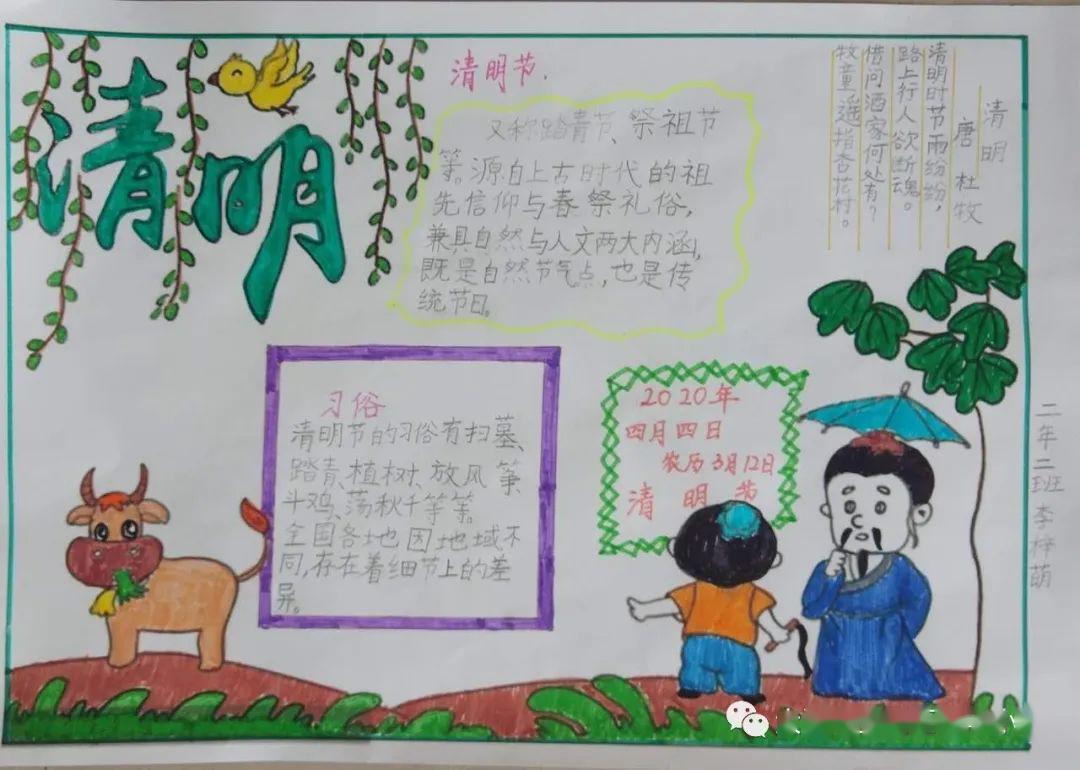 清明
清明节.
又称踏青节、祭祖节
等。源自上古时代的祖
先信仰与春祭礼俗,
兼具自然与人文两大内涵,
既是自然节气点,也是传
统节日。
清明
唐 杜牧
清明时节雨纷纷,
路上行人欲断魂。
借问酒家何处有?
牧童遥指杏花村。
习俗
清明节的习俗有扫墓、
踏青、植树、放风筝、
斗鸡、荡秋千等等。
全国各地因地域不
同,存在着细节上的差
异。
2020年
四月四日
农历3月12日
清明节
二年二班 李梓萌